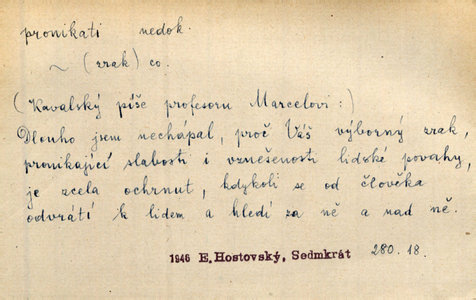 pronikati nedok.
~ (zrak) co.
(Kavalský píše profesoru Marcelovi:)
Dlouho jsem nechápal, proč Váš výborný zrak,
pronikající slabosti i vznešenosti lidské povahy,
je zcela ochrnut, kdykoli se od člověka
odvrátí k lidem a hledí za ně a nad ně.
1946 E. Hostovský, Sedmkrát 280.18.